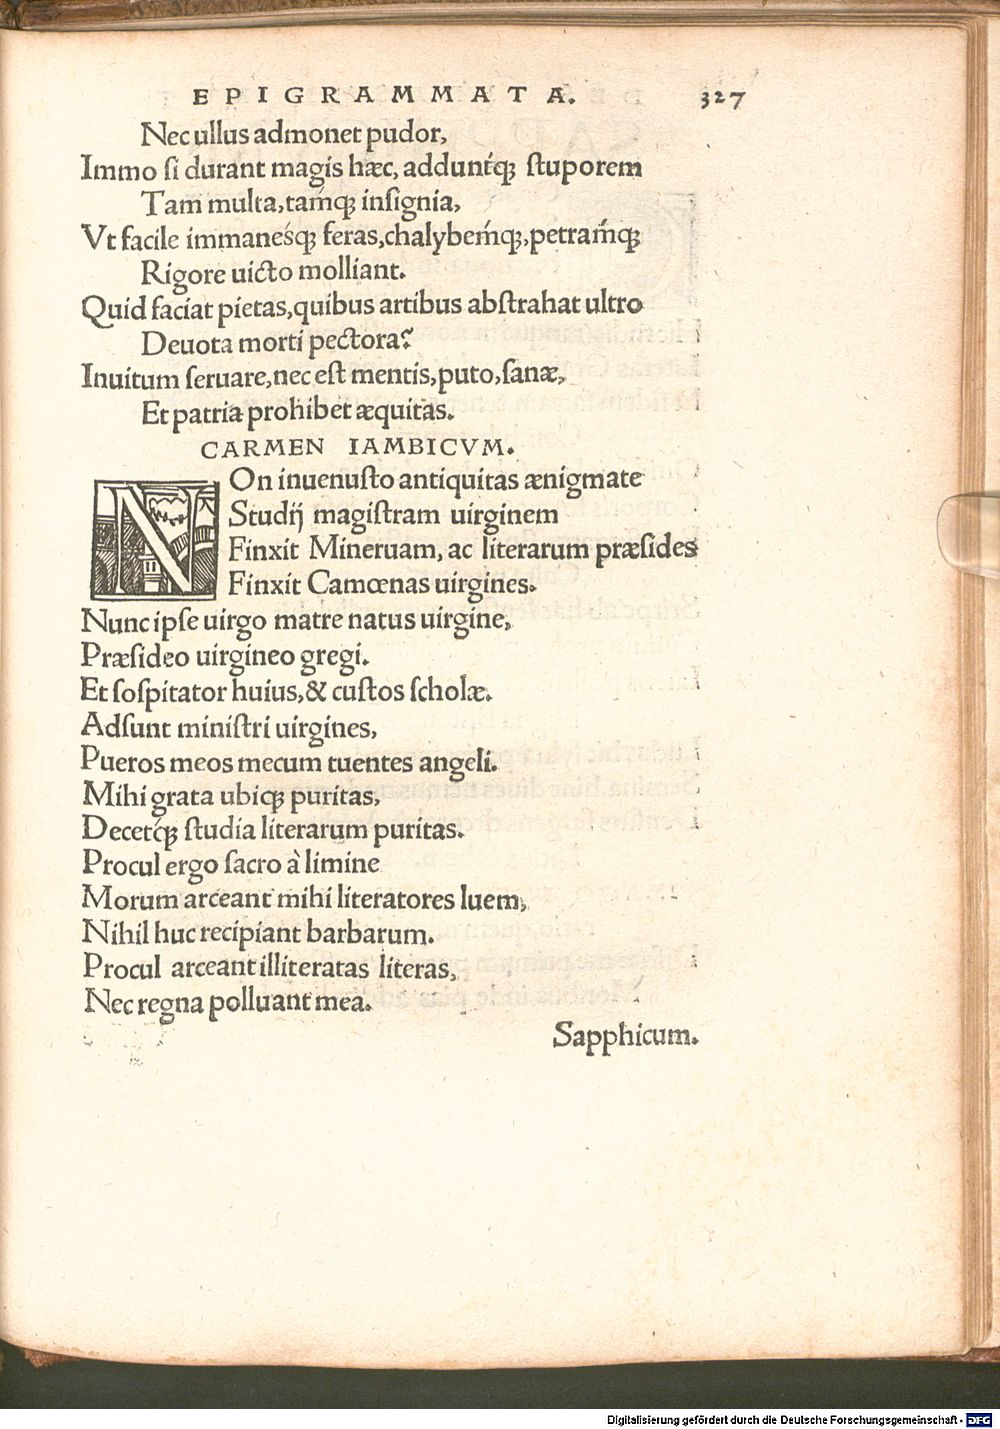 EPIGRAMMATA. 327
Nec ullus admonet pudor,
Immo si durant magis hæc, addunt́q; stuporem
Tam multa, tamq́; insignia,
Vt facile immanesq́; feras, chalybemq́;, petramq́;
Rigore uicto molliant.
Quid faciat pietas, quibus artibus abstrahat ultro
Deuota morti pectora?
Inuitum seruare, nec est mentis, puto, sanæ,
Et patria prohibet æquitas.
CARMEN IAMBICVM.
NOn inuenusto antiquitas ænigmate
Studij magistram uirginem
Finxit Mineruam, ac literarum præsides
Finxit Camœnas uirgines.
Nunc ipse uirgo matre natus uirgine,
Præsideo uirgineo gregi.
Et sospitator huius, & custos scholæ.
Adsunt ministri uirgines,
Pueros meos mecum tuentes angeli.
Mihi grata ubiq; puritas,
Decetq́; studia literarum puritas.
Procul ergo sacro à limine
Morum arceant mihi literatores luem,
Nihil huc recipiant barbarum.
Procul arceant illiteratas literas,
Nec regna polluant mea.
Sapphicum.
Digitalisierung gefördert durch die Deutsche Forschungsgemeinschaft - DFG